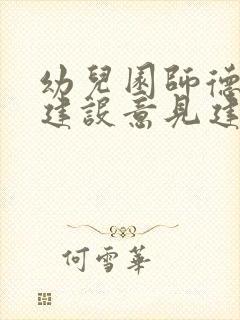 幼兒園師德
建設意見建
何雪華